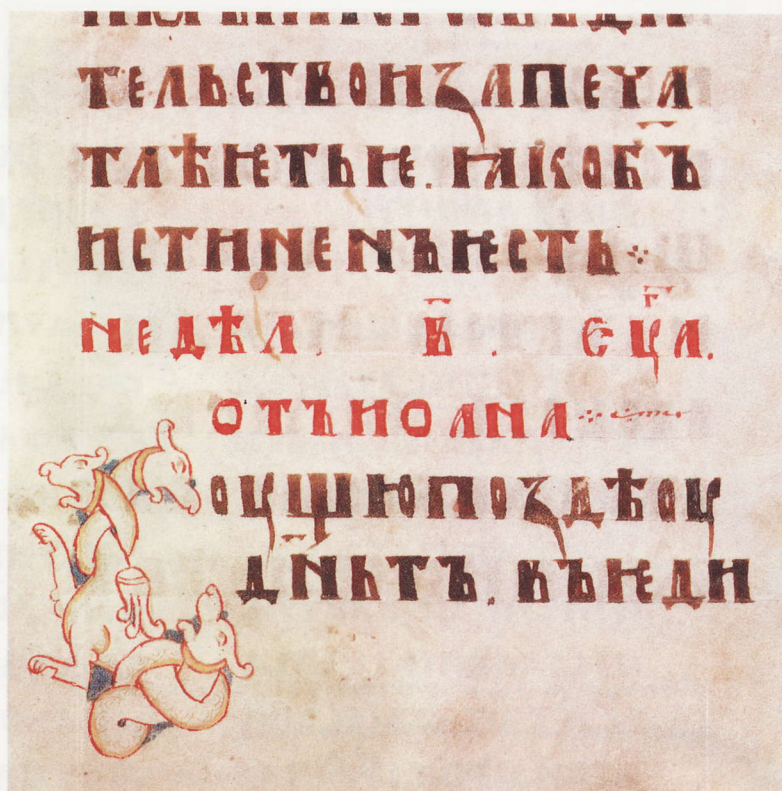 ТЕЛЬСТВОИЗАПЕЧА
ТЛѢѤТЬѤ. ꙖКОБ̅Ъ
ИСТИНЕНЪѤСТЬ⁘
НЕДѢЛ. В̅. ЄУⷢЛ.
ОТЪИОАНА⁘
ОУЩЮПОЗДѢОУ
Д̅НЬТЪ. ВЪѤДИ